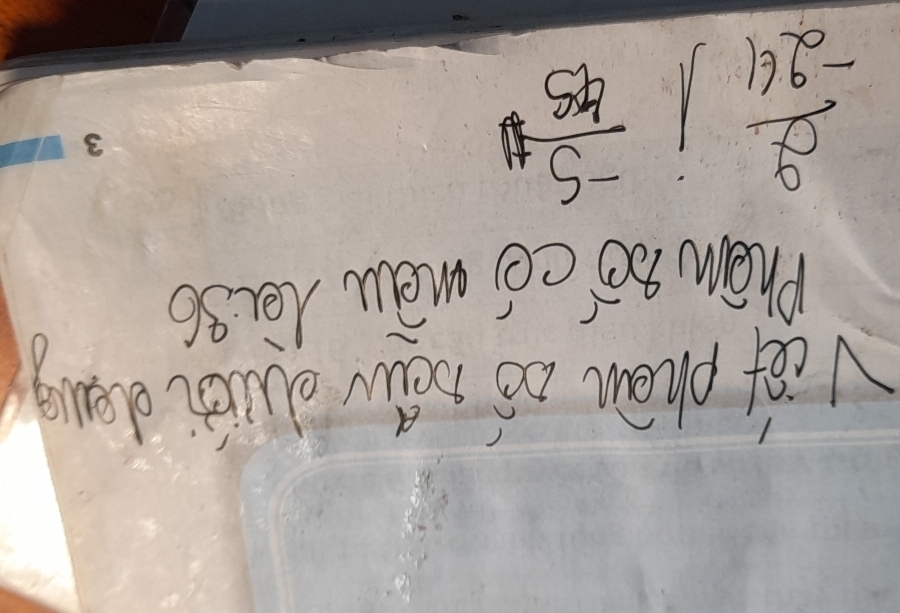 Viết phân số sau dưới dạng
phân số có mẫu là: 36
2/-24 ; -5/45
3